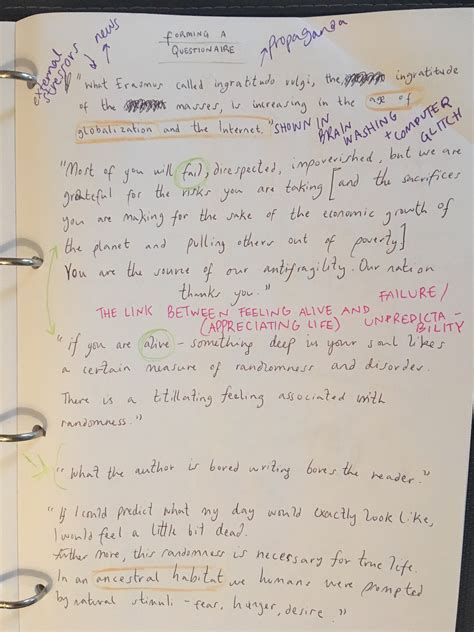 FORMING A
QUESTIONAIRE
news
external
stressors
Propaganda
"What Erasmus called ingratitudo vulgi, the ingratitude
of the masses, is increasing in the age of
globalization and the Internet." SHOWN IN
BRAIN
WASHING
+ COMPUTER
GLITCH
"Most of you will fail, disrespected, impoverished, but we are
grateful for the risks you are taking [and the sacrifices
you are making for the sake of the economic growth of
the planet and pulling others out of poverty]
You are the source of our antifragility. Our nation
thanks you."
THE LINK BETWEEN FEELING ALIVE AND
(APPRECIATING LIFE)
FAILURE/
UNPREDICTA-
BILITY
"if you are alive - something deep in your soul likes
a certain measure of randomness and disorder.
There is a titillating feeling associated with
randomness."
"What the author is bored writing bores the reader."
"If I could predict what my day would exactly look like,
I would feel a little bit dead.
further more, this randomness is necessary for true life.
In an ancestral habitat we humans were prompted
by natural stimuli - fear, hunger, desire."